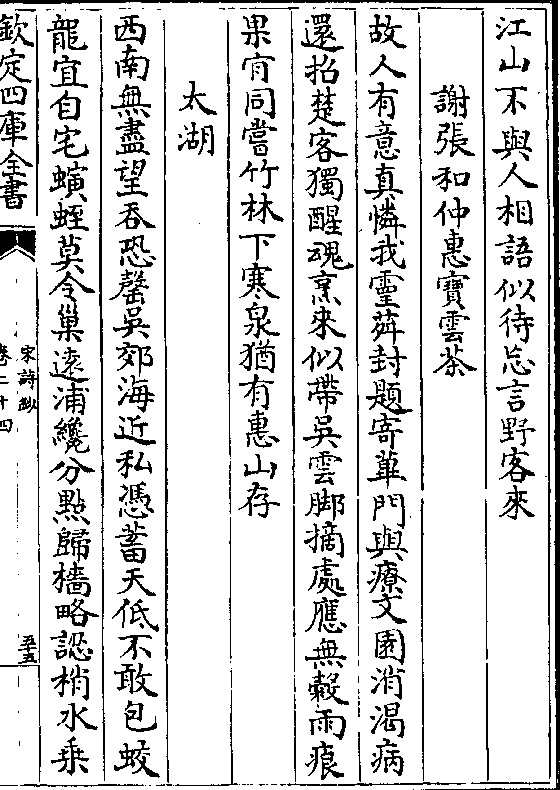 江山不與人相語似待忘言野客來
謝張和仲惠寶雲茶
故人有意真憐我靈荈封題寄蓽門與療文園消渴病
還招楚客獨醒魂烹來似帶吳雲脚摘處應無穀雨痕
果肯同嘗竹林下寒泉猶有惠山存
太湖
西南無盡望吞恐罄吳郊海近私憑蓄天低不敢包蛟
龍宜自宅螾蛭莫令巢遠浦纔分㸃歸檣略認梢水乗
欽定四庫全書
宋詩鈔
卷二十四
五十五